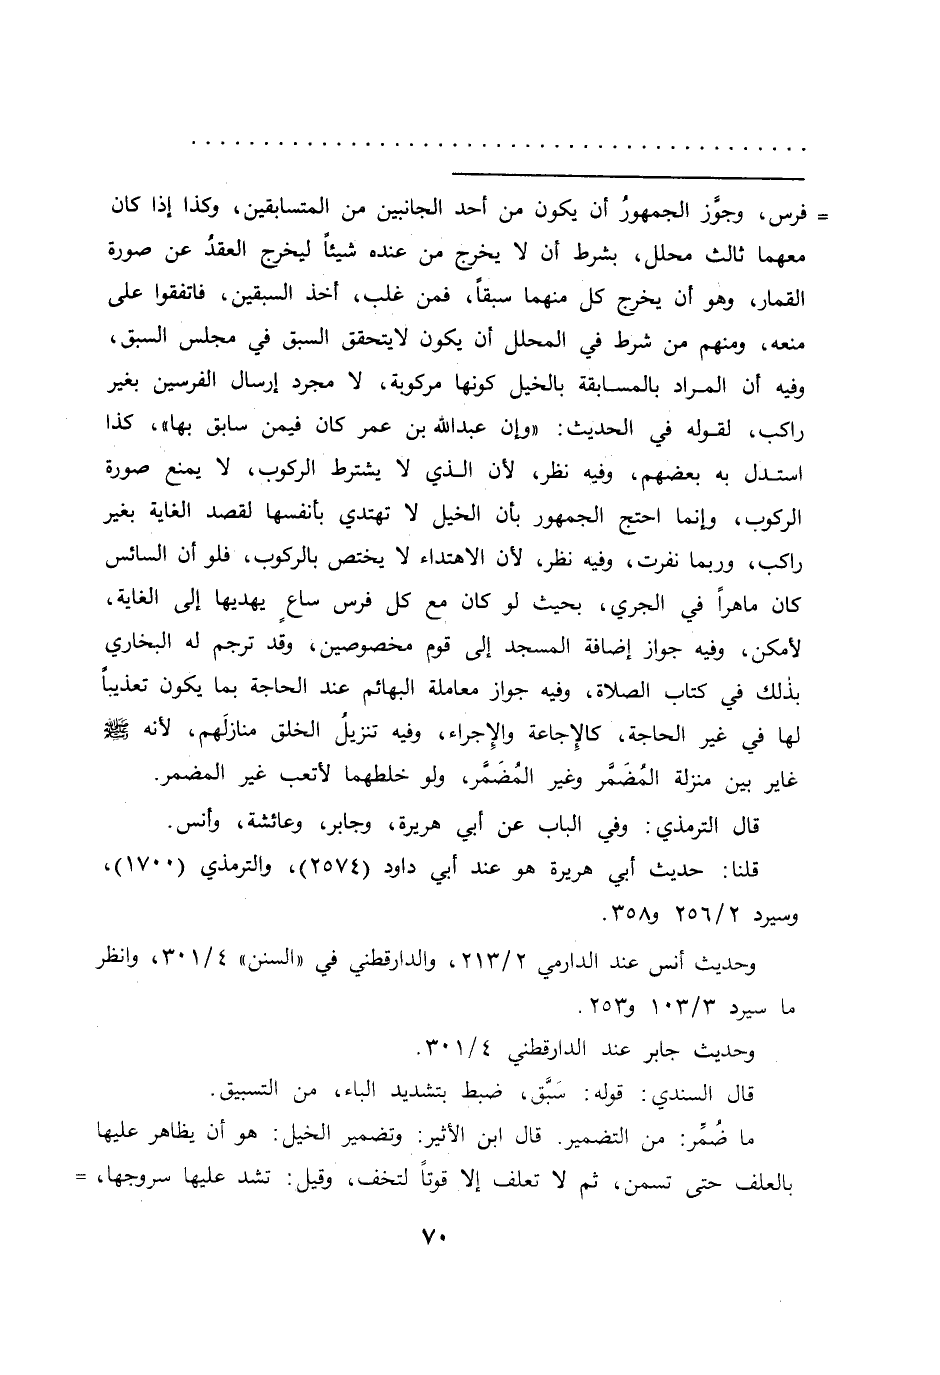 = فرس، وجوَّز الجمهورُ أن يكون من أحد الجانبين من المتسابقين، وكذا إذا كان
معهما ثالث محلل، بشرط أن لا يخرج من عنده شيئاً ليخرج العقدُ عن صورة
القمار، وهو أن يخرج كل منهما سبقاً، فمن غلب، أخذ السبقين، فاتفقوا على
منعه، ومنهم من شرط في المحلل أن يكون لايتحقق السبق في مجلس السبق،
وفيه أن المراد بالمسابقة بالخيل كونها مركوبة، لا مجرد إرسال الفرسين بغير
راكب، لقوله في الحديث: «وإن عبدالله بن عمر كان فيمن سابق بها»، كذا
استدل به بعضهم، وفيه نظر، لأن الذي لا يشترط الركوب، لا يمنع صورة
الركوب، وإنما احتج الجمهور بأن الخيل لا تهتدي بأنفسها لقصد الغاية بغير
راكب، وربما نفرت، وفيه نظر، لأن الاهتداء لا يختص بالركوب، فلو أن السائس
كان ماهراً في الجري، بحيث لو كان مع كل فرس ساعٍ يهديها إلى الغاية،
لأمكن، وفيه جواز إضافة المسجد إلى قوم مخصوصين، وقد ترجم له البخاري
بذلك في كتاب الصلاة، وفيه جواز معاملة البهائم عند الحاجة بما يكون تعذيباً
لها في غير الحاجة، كالإجاعة والإجراء، وفيه تنزيلُ الخلق منازلَهم، لأنه ﷺ
غاير بين منزلة المُضَمَّر وغير المُضَمَّر، ولو خلطهما لأتعب غير المضمر.
قال الترمذي: وفي الباب عن أبي هريرة، وجابر، وعائشة، وأنس.
قلنا: حديث أبي هريرة هو عند أبي داود (٢٥٧٤)، والترمذي (١٧٠٠)،
وسيرد ٢/٢٥٦ و٣٥٨.
وحديث أنس عند الدارمي ٢/٢١٣، والدارقطني في «السنن» ٤/٣٠١، وانظر
ما سيرد ٣/١٠٣ و٢٥٣.
وحديث جابر عند الدارقطني ٤/٣٠١.
قال السندي: قوله: سَبَّق، ضبط بتشديد الباء، من التسبيق.
ما ضُمِّر: من التضمير. قال ابن الأثير: وتضمير الخيل: هو أن يظاهر عليها
بالعلف حتى تسمن، ثم لا تعلف إلا قوتاً لتخف، وقيل: تشد عليها سروجها، =
٧٠